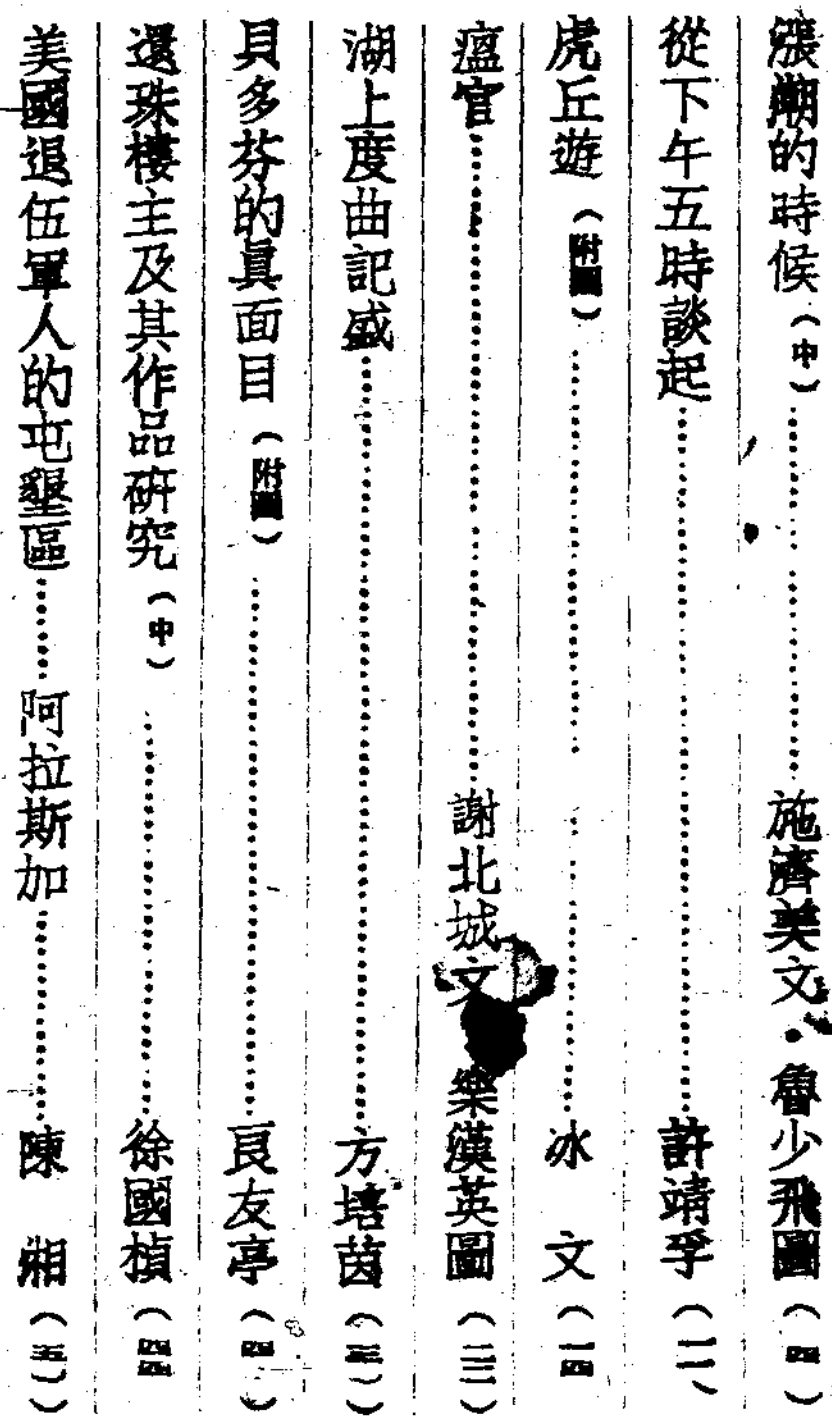 漲潮的時候（中）……施濟美文・魯少飛圖（四）
從下午五時談起……許靖孚
虎丘遊（附圖）……冰　文（一四
瘟官……謝北城文　樂漢英圖（三三）
湖上度曲記盛……方培茵
貝多芬的眞面目（附圖）……良友亭
還珠樓主及其作品硏究（中）……徐國楨（四四
美國退伍軍人的屯墾區……阿拉斯加……陳　湘